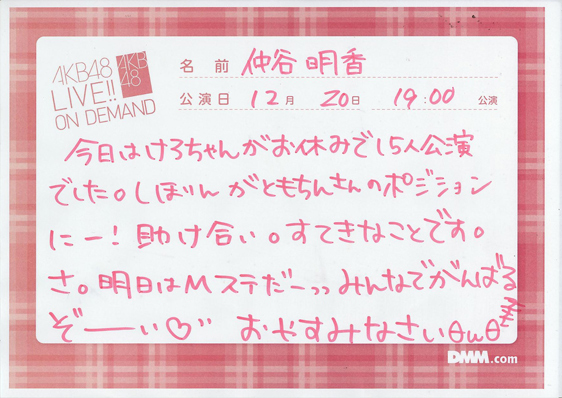 AKB48
LIVE!!
ON DEMAND
AKB
48
名前 仲谷明香
公演日 12月 20日 19:00 公演
今日はけろちゃんがお休みで15人公演
でした。しほりんがともちんさんのポジション
にー!助け合い。すてきなことです。
さ。明日はMステだーっっみんなでがんばる
ぞーーい♡〃 おやすみなさいθωθ
DMM.com